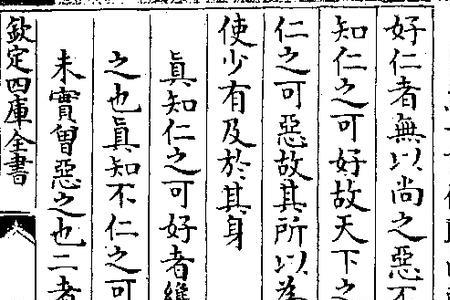 好仁者無以尚之惡不
知仁之可好故天下之
仁之可惡故其所以為
使少有及於其身
真知仁之可好者維
之也真知不仁之可
未實曽惡之也二者
欽定四庫全書